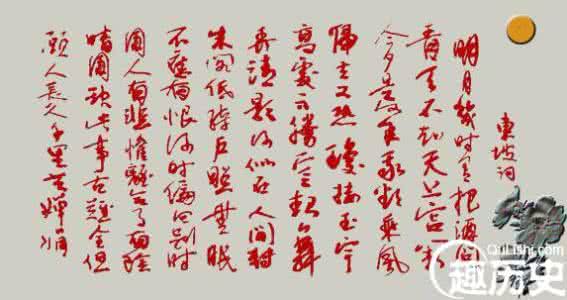 東坡词
明月幾时有把酒问
青天不知天上宫阙
今夕是何年我欲乘风
归去又恐琼楼玉宇
高处不勝寒起舞
弄清影何似在人间转
朱阁低绮户照無眠
不应有恨何时偏向别时
圆人有悲欢離合月有阴
晴圆缺此事古難全但
願人長久千里共婵娟
QuLishi.com
趣历史